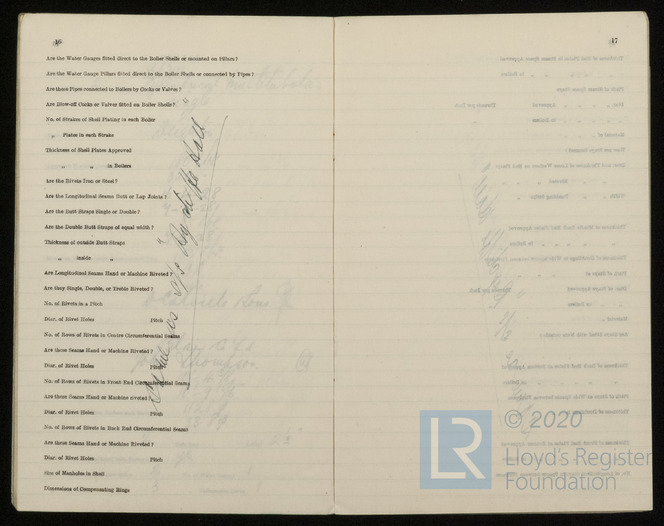 16
Are the Water Gauges fitted direct to the Boiler Shells or mounted on Pillars?
Are the Water Gauge Pillars fitted direct to the Boiler Shells or connected by Pipes?
Are these Pipes connected to Boilers by Cocks or Valves?
Are Blow-off Cocks or Valves fitted on Boiler Shells?
No. of Strakes of Shell Plating in each Boiler
„ Plates in each Strake
Thickness of Shell Plates Approved
„ „ in Boilers
Are the Rivets Iron or Steel?
Are the Longitudinal Seams Butt or Lap Joints?
Are the Butt Straps Single or Double?
Are the Double Butt Straps of equal width?
Thickness of outside Butt Straps
„ inside „
Are Longitudinal Seams Hand or Machine Riveted?
Are they Single, Double, or Treble Riveted?
No. of Rivets in a Pitch
Diar. of Rivet Holes Pitch
No. of Rows of Rivets in Centre Circumferential Seams
Are these Seams Hand or Machine Riveted?
Diar. of Rivet Holes Pitch
No. of Rows of Rivets in Front End Circumferential Seams
Are these Seams Hand or Machine riveted?
Diar. of Rivet Holes Pitch
No. of Rows of Rivets in Back End Circumferential Seams
Are these Seams Hand or Machine Riveted?
Diar. of Rivet Holes Pitch
Size of Manholes in Shell
Dimensions of Compensating Rings
as S/S
Hall
17
LR
© 2020
Lloyd's Register
Foundation